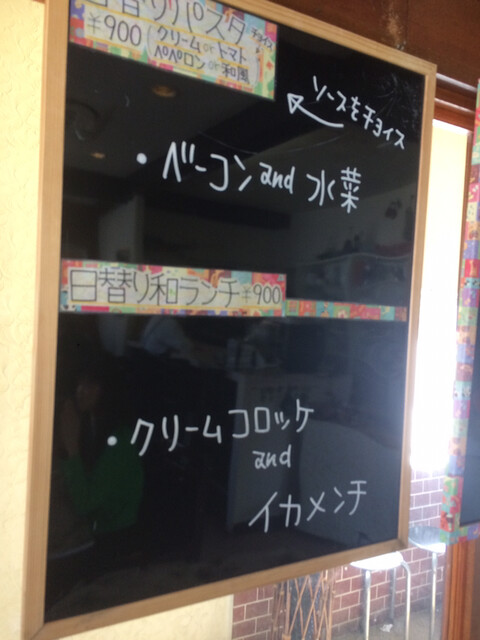 日替りパスタ チョイス
¥900(クリーム or トマト
ペペロン or 和風)
ソースをチョイス
・ベーコン and 水菜
日替り和ランチ ¥900
・クリームコロッケ
and
イカメンチ